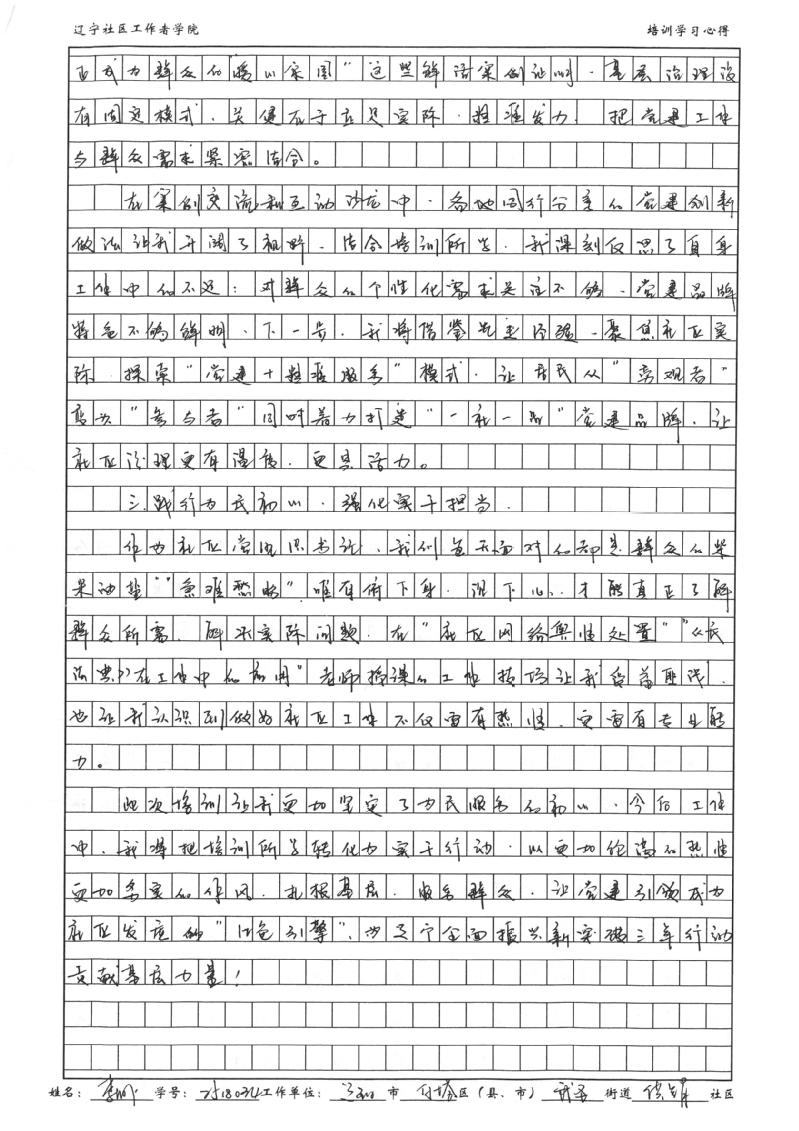 辽宁社区工作者学院 培训学习心得
成为群众的"暖心家园"这些鲜活案例证明,基层治理没
有固定模式,关键在于立足实际,精准发力,把党建工作
与群众需求紧密结合。
在案例交流和互动沙龙中,各地同行分享的党建创新
做法让我开阔了视野,结合培训所学,我深刻反思了自身
工作中的不足:对群众的个性化需求关注不够,党建品牌
特色不够鲜明,下一步,我将借鉴先进经验,聚焦社区实
际,探索"党建+精准服务"模式,让居民从"旁观者"
变为"参与者"同时着力打造"一社一品"党建品牌,让
社区治理更有温度,更具活力。
三、践行为民初心,强化实干担当,
作为社区党组织书记,我们每天面对的都是群众的柴
米油盐""急难愁盼",唯有俯下身,沉下心,才能真正了解
群众所需,解决实际问题,在"社区网络舆情处置""《民
法典》在工作中的应用"老师授课的工作技巧让我受益匪浅,
也让我认识到做好社区工作不仅需有热情,更需有专业能
力。
此次培训让我更加坚定了为民服务的初心,今后工作
中,我将把培训所学转化为实干行动,以更加饱满的热情
更加务实的作风,扎根基层,服务群众,让党建引领成为
社区发展的"红色引擎",为辽宁全面振兴新突破三年行动
贡献基层力量!
姓名: 学号: 工作单位: 市 区(县、市) 街道 社区